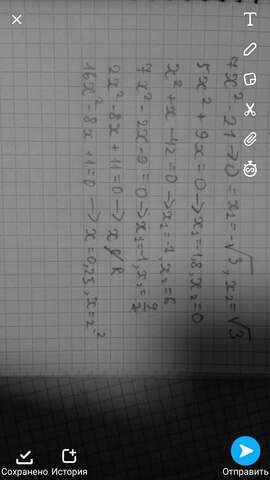 T
7x²-21→0 = x₁=-√3, x₂=√3
5x²+9x=0→x₁=1,8, x₂=0
x²+x-42=0→x₁=-7, x₂=6
7x²-2x-9=0→x₁=-1, x₂=9/7
2x²-8x+11=0→x∉R
16x²-8x+1=0→x=0,25, x=2⁻²
Сохранено История Отправить